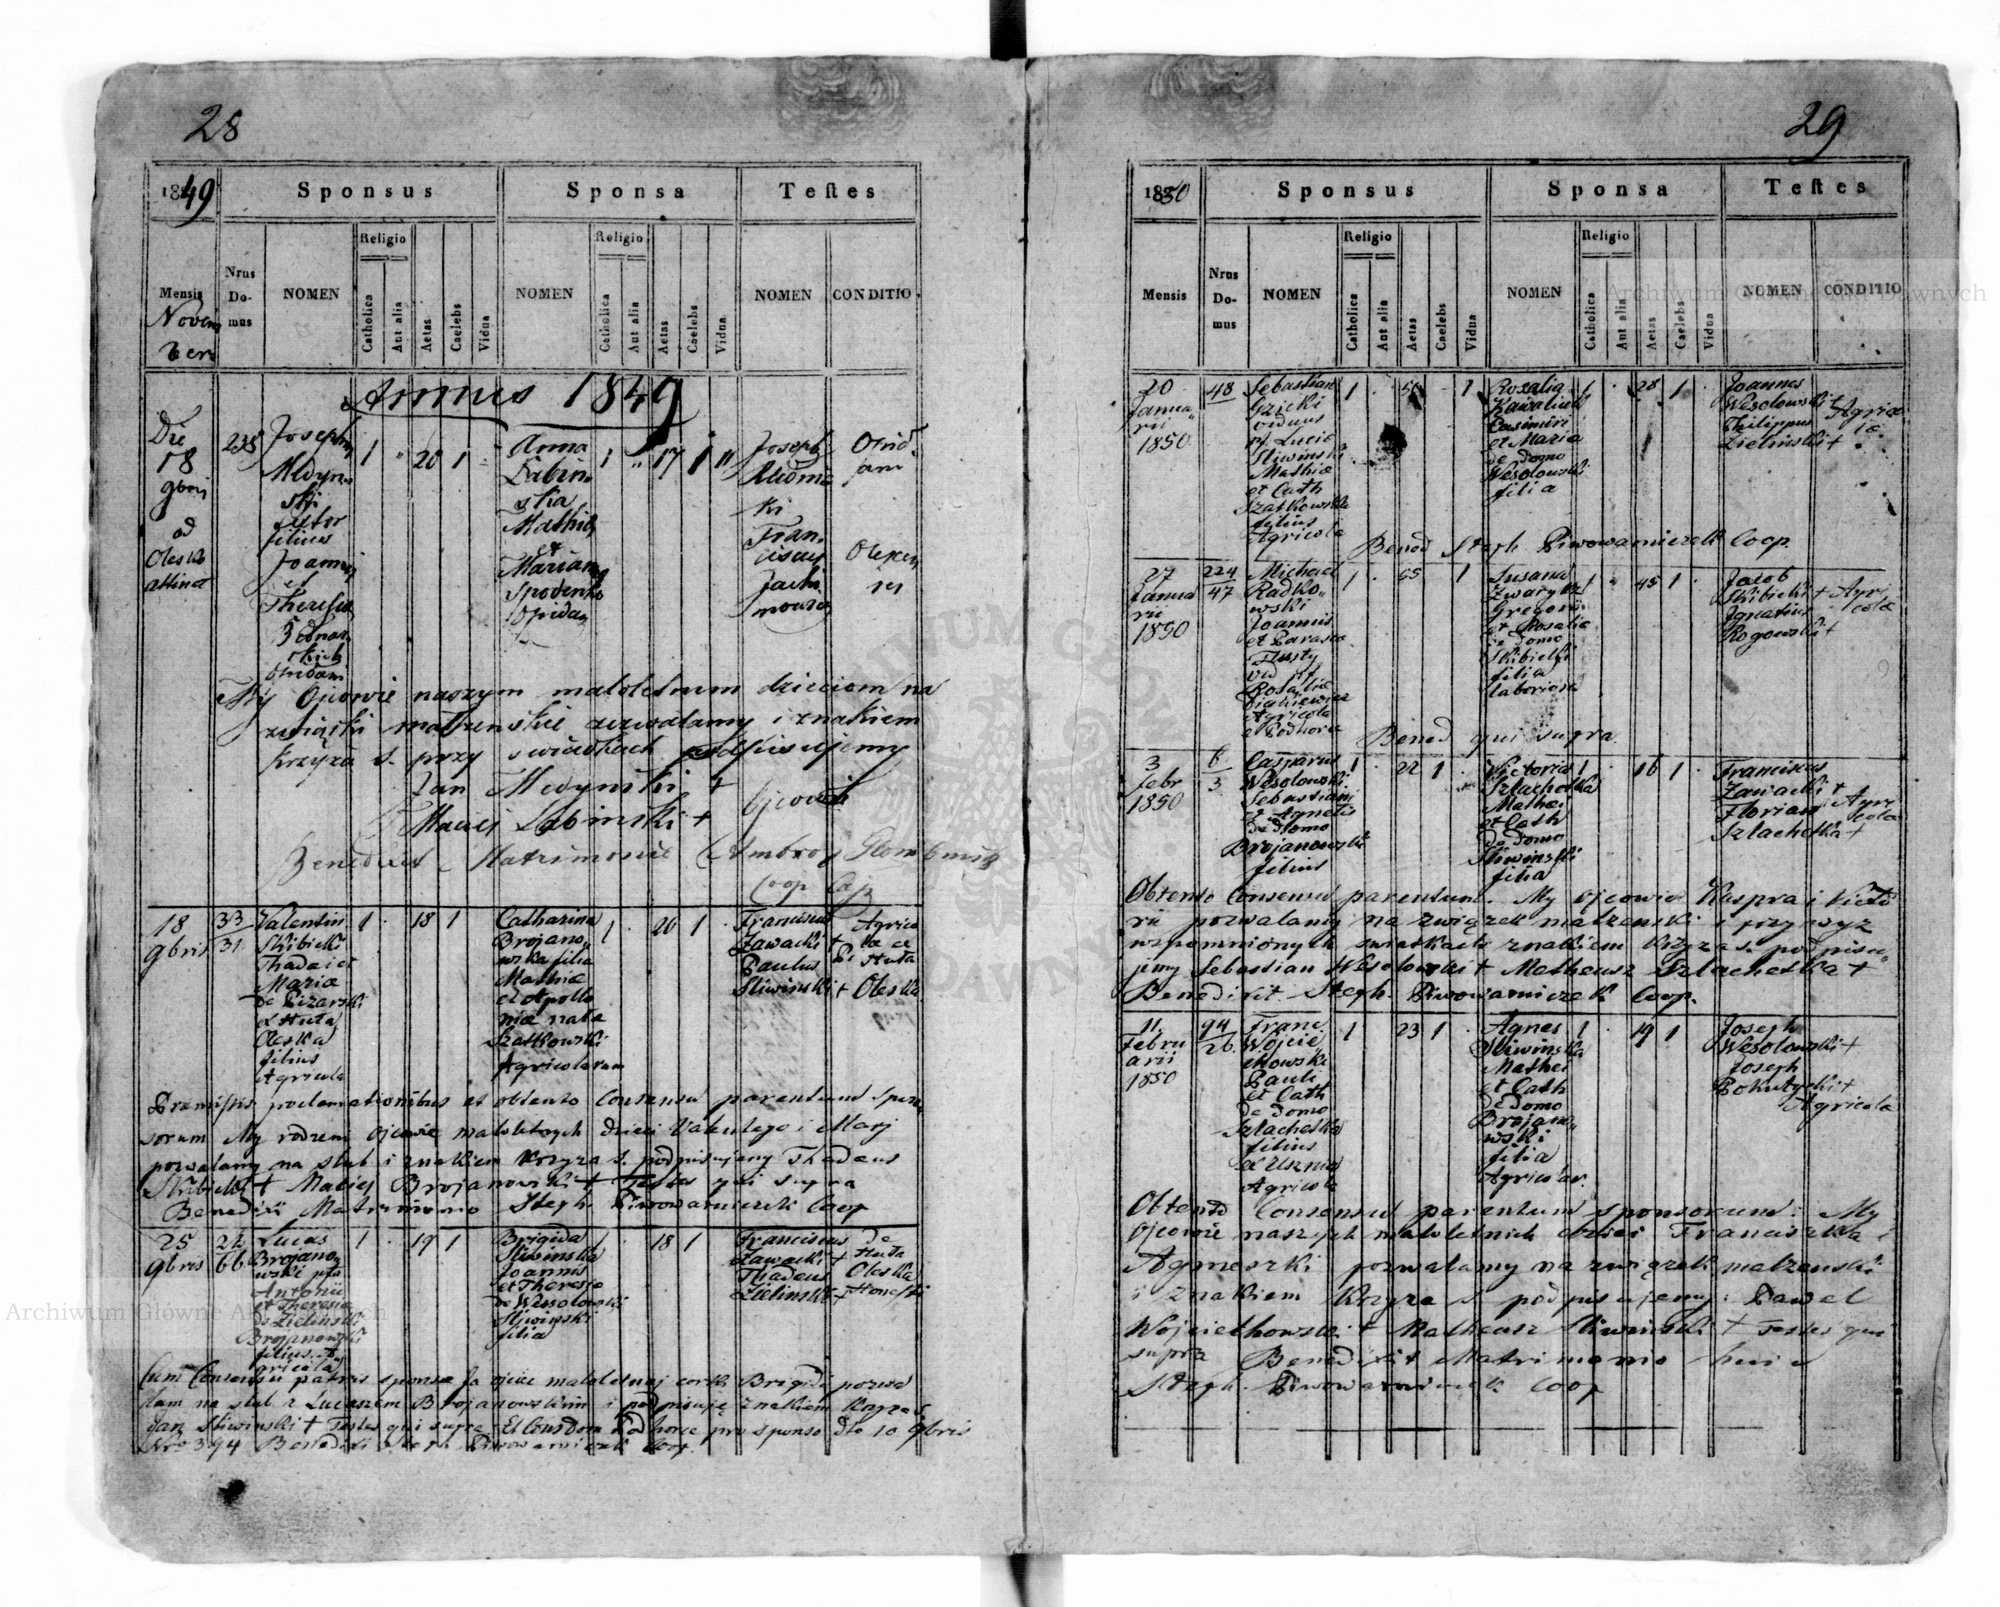 28
1849
Sponsus
Sponsa
Teſtes
Mensis
Novem
ber
Nrus
Do-
mus
NOMEN
Religio
Catholica
Aut alia
Aetas
Caelebs
Vidua
NOMEN
Religio
Catholica
Aut alia
Aetas
Caelebs
Vidua
NOMEN
CONDITIO
Annus 1849
Die
18
9bris
ad
Olesko
attinet
238
Joseph
Medyn
ski
sutor
filius
Joannis
et
Theresiae
1 20 1
Anna
Labin
ska
Mathiae
et
Marianna
1 17 1
Joseph
ki
Fran
ciscus
Oppid
am
My Ojcowie naszym maloletnim dzieciom na
związki małżenskie zezwalamy i znakiem
krzyża s. przy swiadkach podpisujemy
Jan Medynski +
Maciej Labinski +
Ojcowie
Matrimonio
Coop
18
9bris
33
31
Valentin
Skibicki
Thadaei et
Maria
de Pizarski
e Huta
Oleska
filius
Agricola
1 18 1
Catharina
Brojano
wska filia
Mathiae
et Apollo
niae nata
Szatkowski
Agricolarum
1 20 1
Franciscus
Zawacki +
Paulus
Sliwinski +
Agrico
lae
Huta
Oleska
Praemissis proclamationibus et obtento Consensu parentum Spon
sorum My rodzeni Ojcowie maloletnych dzieci Valentego i Marj
pozwalamy na slub i znakiem krzyza s. podpisujemy Thadeus
Skibicki + Maciej Brojanowski + Testes qui supra
Benedixi Matrimonio Steph Piwowarniczek Coop
25
9bris
66
Lucas
Brojano
wski
Antonii
et Theresia
de Zielinski
Brojanowski
filius A
gricola
1 19 1
Brigida
Sliwinska
Joannis
et Theresiae
de Wesolowski
Sliwinski
filia
1 18 1
Franciscus
Zawacki +
Thadeus
Zielinski +
de
Huta
Oleska
Cum Consensu patris sponsae Ja ojciec maloletniej corki Brigidi pozwa
lam na slub z Lucaszem Brojanowskim i podpisuję znakiem krzyza s.
Jan Sliwinski + Testes qui supra
Nro 394 Benedixi Steph Piwowarniczek Coop.
29
1850
Sponsus
Sponsa
Teſtes
Mensis
Nrus
Do-
mus
NOMEN
Religio
Catholica
Aut alia
Aetas
Caelebs
Vidua
NOMEN
Religio
Catholica
Aut alia
Aetas
Caelebs
Vidua
NOMEN
CONDITIO
20
Janua
rii
1850
48
Sebastian
viduus
Lucia
Sliwinski
Mathiae
et Cath
Szatkowska
filius
Agricola
1 1
Rosalia
Casimiri
et Maria
de domo
Wesolowski
filia
1 28 1
Joannes
Wesolowski +
Philippus
Zielinski +
Agrico
lae
Bened Steph Piwowarniczek Coop.
27
Janua
rii
1850
224
47
Michael
Radko
wski
Joannis
et Parasca
Tlusty
Rosalia
Agricola
e Podhorce
1 55 1
Susana
Zwarycz
Gregorii
et Rosalia
de domo
Skibicki
filia
laboriosa
1 45 1
Jacob
Skibicki +
Ignatius
Rogowski +
Agri
colae
Bened qui supra
3
Febr
1850
6
3
Casparus
Wesolowski
Sebastiani
et Agnetis
de domo
Brojanowski
filius
1 22 1
Victoria
Szlachetka
Mathei
et Cath
de domo
Sliwinski
filia
1 16 1
Franciscus
Zawacki +
Florian
Szlachetka +
Agri
colae
Obtento Consensu parentum. My ojcowie Kaspra i Victo
rii pozwalamy na związek malzenski i przy wyz
wzpomnionych swiatkach znakiem krzyza s. podpisu
jemy Sebastian Wesolowski + Matheusz Szlachetka +
Benedixit Steph. Piwowarniczek Coop.
11
Febru
arii
1850
94
26
Franc
Wojcie
chowski
Pauli
et Cath
de domo
Szlachetka
filius
e Usznia
Agricola
1 23 1
Agnes
Sliwinska
Mathei
et Cath
de domo
Brojano
wski
filia
Agricolar.
1 19 1
Joseph
Wesolowski +
Joseph
Pokutycki +
Agricola
Obtento Consensu parentum sponsorum. My
Ojcowie naszych maloletnich dzieci Franciszka i
Agnieszki pozwalamy na związek malzenski
i znakiem krzyza s. podpisujemy: Pawel
Wojciechowski + Matheusz Sliwinski + Testes qui
supra Benedixit Matrimonio huic
Steph. Piwowarniczek Coop
Archiwum Główne Akt Dawnych
Archiwum Główne Akt Dawnych